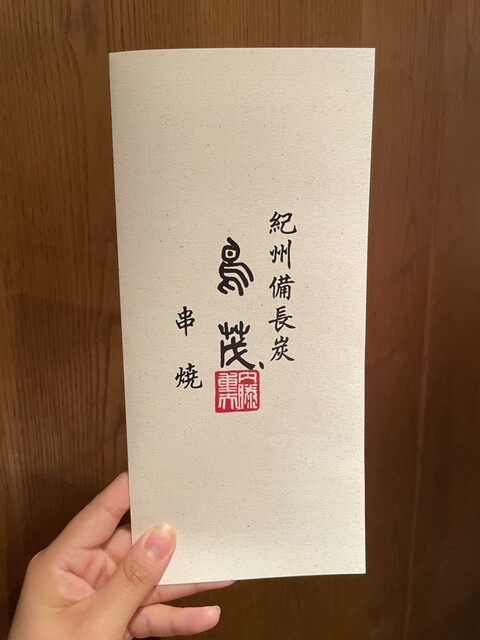 紀州備長炭
鳥茂
串焼
内藤